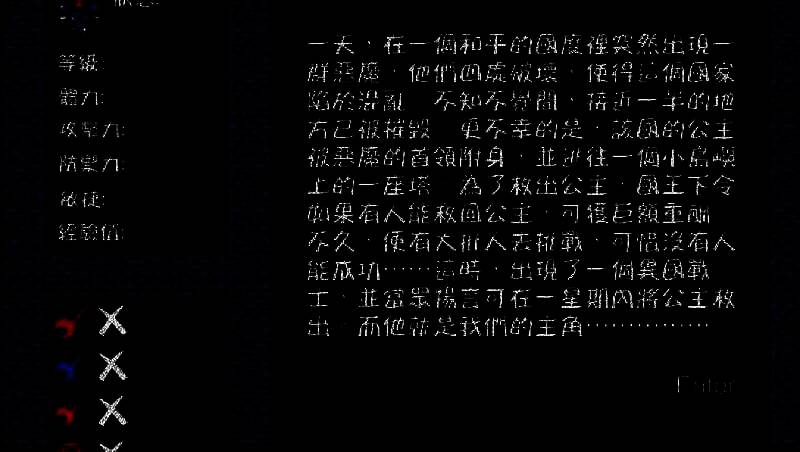 狀態
等級:
能力:
攻擊力:
防禦力:
敏捷:
經驗值:
一天，在一個和平的國度裡突然出現一
群惡魔，他們四處破壞，使得這個國家
陷於混亂　不知不覺間，接近一半的地
方已被摧毀　更不幸的是，該國的公主
被惡魔的首領附身，並逃往一個小島嶼
上的一座塔　為了救出公主，國王下令
如果有人能救回公主，可獲巨額重酬
不久，便有大批人去挑戰，可惜沒有人
能成功……這時，出現了一個異國戰
士，並當眾揚言可在一星期內將公主救
出　而他就是我們的主角……………
Enter